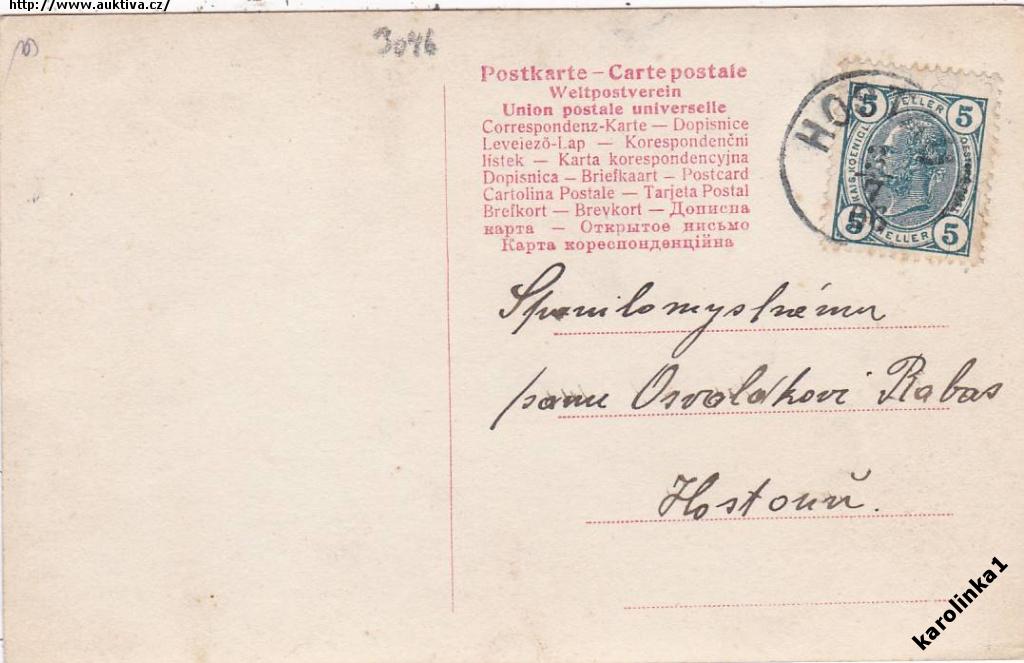 http://www.auktiva.cz/
3046
Postkarte – Carte postale
Weltpostverein
Union postale universelle
Correspondenz-Karte — Dopisnice
Levelező-Lap — Korespondenční
lístek — Karta korespondencyjna
Dopisnica — Briefkaart — Postcard
Cartolina Postale — Tarjeta Postal
Brefkort — Brevkort — Дописна
карта — Открытое письмо
Карта кореспонденційна
HOST
5 HELLER 5
KAIS. KOENIGL.
5 HELLER 5
Spanilomyslnému
panu Osvaldkovi Rabas
Hostouň.
karolinka1